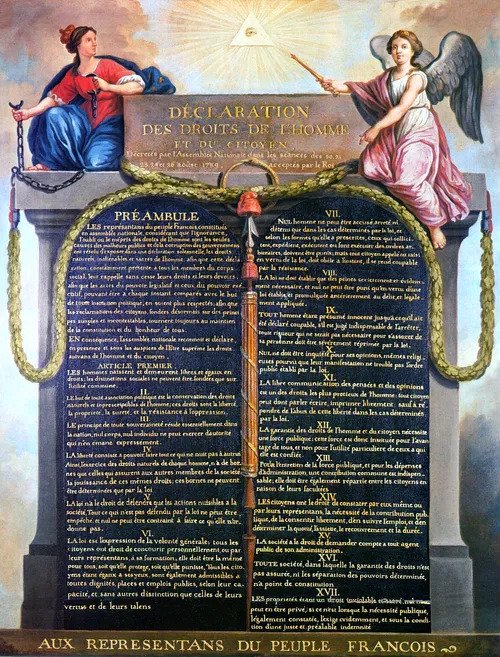 DÉCLARATION
DES DROITS DE L'HOMME
ET DU CITOYEN,
Décrétés par l'Assemblée Nationale dans les séances des 20, 21
23, 24 et 26 août 1789, acceptés par le Roi
PRÉAMBULE
LES représentans du peuple François, constitués
en assemblée nationale, considérant que l'ignorance,
l'oubli ou le mépris des droits de l'homme sont les seules
causes des malheurs publics et de la corruption des gouvernemens
ont résolu d'exposer dans une déclaration solemnelle, les droits
naturels, inaliénables et sacrés de l'homme; afin que cette décla-
ration, constamment présente à tous les membres du corps
social, leur rappelle sans cesse leurs droits et leurs devoirs;
afin que les actes du pouvoir législatif et ceux du pouvoir exé-
cutif, pouvant être à chaque instant comparés avec le but
de toute institution politique, en soient plus respectés; afin que
les réclamations des citoyens, fondées désormais sur des princi-
pes simples et incontestables, tournent toujours au maintien
de la constitution et du bonheur de tous.
EN conséquence, l'assemblée nationale reconnoît et déclare,
en présence et sous les auspices de l'Etre suprême les droits
suivans de l'homme et du citoyen.
ARTICLE PREMIER.
LES hommes naissent et demeurent libres et égaux en
droits; les distinctions sociales ne peuvent être fondées que sur
l'utilité commune.
II.
LE but de toute association politique est la conservation des droits
naturels et imprescriptibles de l'homme; ces droits sont la liberté,
la propriété, la sureté, et la résistance à l'oppression.
III.
LE principe de toute souveraineté réside essentiellement dans
la nation, nul corps, nul individu ne peut exercer d'autorité
qui n'en émane expressément.
IV.
LA liberté consiste à pouvoir faire tout ce qui ne nuit pas à autrui
Ainsi, l'exercice des droits naturels de chaque homme, n'a de bor-
nes que celles qui assurent aux autres membres de la société
la jouissance de ces mêmes droits; ces bornes ne peuvent
être déterminées que par la loi
V.
LA loi n'a le droit de défendre que les actions nuisibles à la
société. Tout ce qui n'est pas défendu par la loi ne peut être
empêché, et nul ne peut être contraint à faire ce qu'elle n'or-
donne pas.
VI.
LA loi est l'expression de la volonté générale; tous les
citoyens ont droit de concourir personnellement, ou par
leurs représentans, à sa formation; elle doit être la même
pour tous, soit qu'elle protege, soit qu'elle punisse. Tous les citoy-
ens étant égaux à ses yeux, sont également admissibles à
toutes dignités, places et emplois publics, selon leur ca-
pacité, et sans autres distinction que celles de leurs
vertus et de leurs talens
VII.
NUL homme ne peut être accusé, arreté, ni
détenu que dans les cas déterminés par la loi, et
selon les formes qu'elle a prescrites, ceux qui sollici-
tent, expédient, exécutent ou font exécuter des ordres ar-
bitraires, doivent être punis; mais tout citoyen appelé ou saisi
en vertu de la loi, doit obéir à l'instant, il se rend coupable
par la résistance.
VIII.
LA loi ne doit établir que des peines strictement et évidem-
ment nécessaire, et nul ne peut être puni qu'en vertu d'une
loi établie et promulguée antérieurement au délit, et légale-
ment appliquée.
IX.
TOUT homme étant présumé innocent jusqu'à ce qu'il ait
été déclaré coupable, s'il est jugé indispensable de l'arrêter,
toute rigueur qui ne serait pas nécessaire pour s'assurer de
sa personne doit être sévèrement réprimée par la loi.
X.
NUL ne doit être inquiété pour ses opinions, mêmes religi-
euses pourvu que leur manifestation ne trouble pas l'ordre
public établi par la loi.
XI.
LA libre communication des pensées et des opinions
est un des droits les plus précieux de l'homme; tout citoyen
peut donc parler écrire, imprimer librement: sauf à ré-
pondre de l'abus de cette liberté dans les cas déterminés
par la loi.
XII.
LA garantie des droits de l'homme et du citoyen nécessite
une force publique; cette force est donc instituée pour l'avan-
tage de tous, et non pour l'utilité particuliere de ceux a qui
elle est confiée.
XIII.
POUR l'entretien de la force publique, et pour les dépenses
d'administration, une contribution commune est indispen-
sable; elle doit être également répartie entre les citoyens en
raison de leurs facultés.
XIV.
LES citoyens ont le droit de constater par eux même ou
par leurs représentans, la nécessité de la contribution pub-
lique, de la consentir librement, d'en suivre l'emploi, et d'en
déterminer la quotité, l'assiette, le recouvrement et la durée.
XV.
LA société a le droit de demander compte a tout agent
public de son administration.
XVI.
TOUTE société, dans laquelle la garantie des droits n'est
pas assuré, ni les séparation des pouvoirs déterminée,
n'a point de constitution
XVII.
LES propriétés étant un droit inviolable et sacré, nul ne
peut en être privé, si ce n'est lorsque la nécessité publique,
légalement constatée, l'exige evidemment, et sous la condi-
tion d'une juste et préalable indemnité
AUX REPRESENTANS DU PEUPLE FRANCOIS